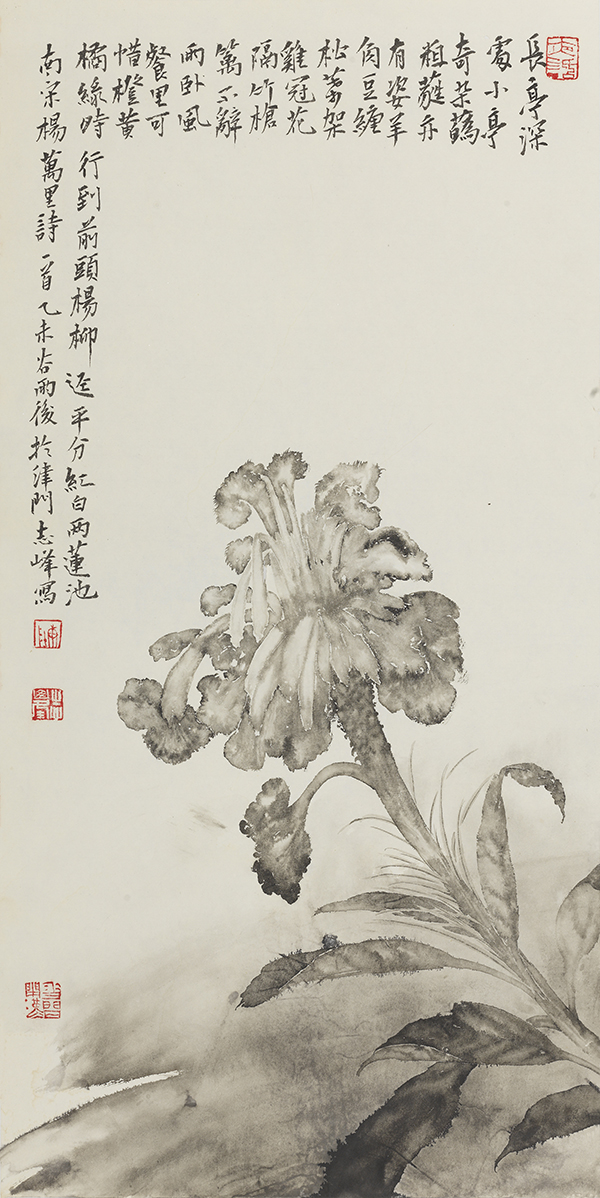 長亭深
處小亭
奇杂蘤
粗蔬亦
有姿羊
角豆纏
松葉架
雞冠花
隔竹槍
籬不辭
雨卧風
餐里可
惜橙黄
橘緑時行到前頭楊柳逕平分紅白兩蓮池
南宋楊萬里詩一首乙未谷雨後於津門志峰寫